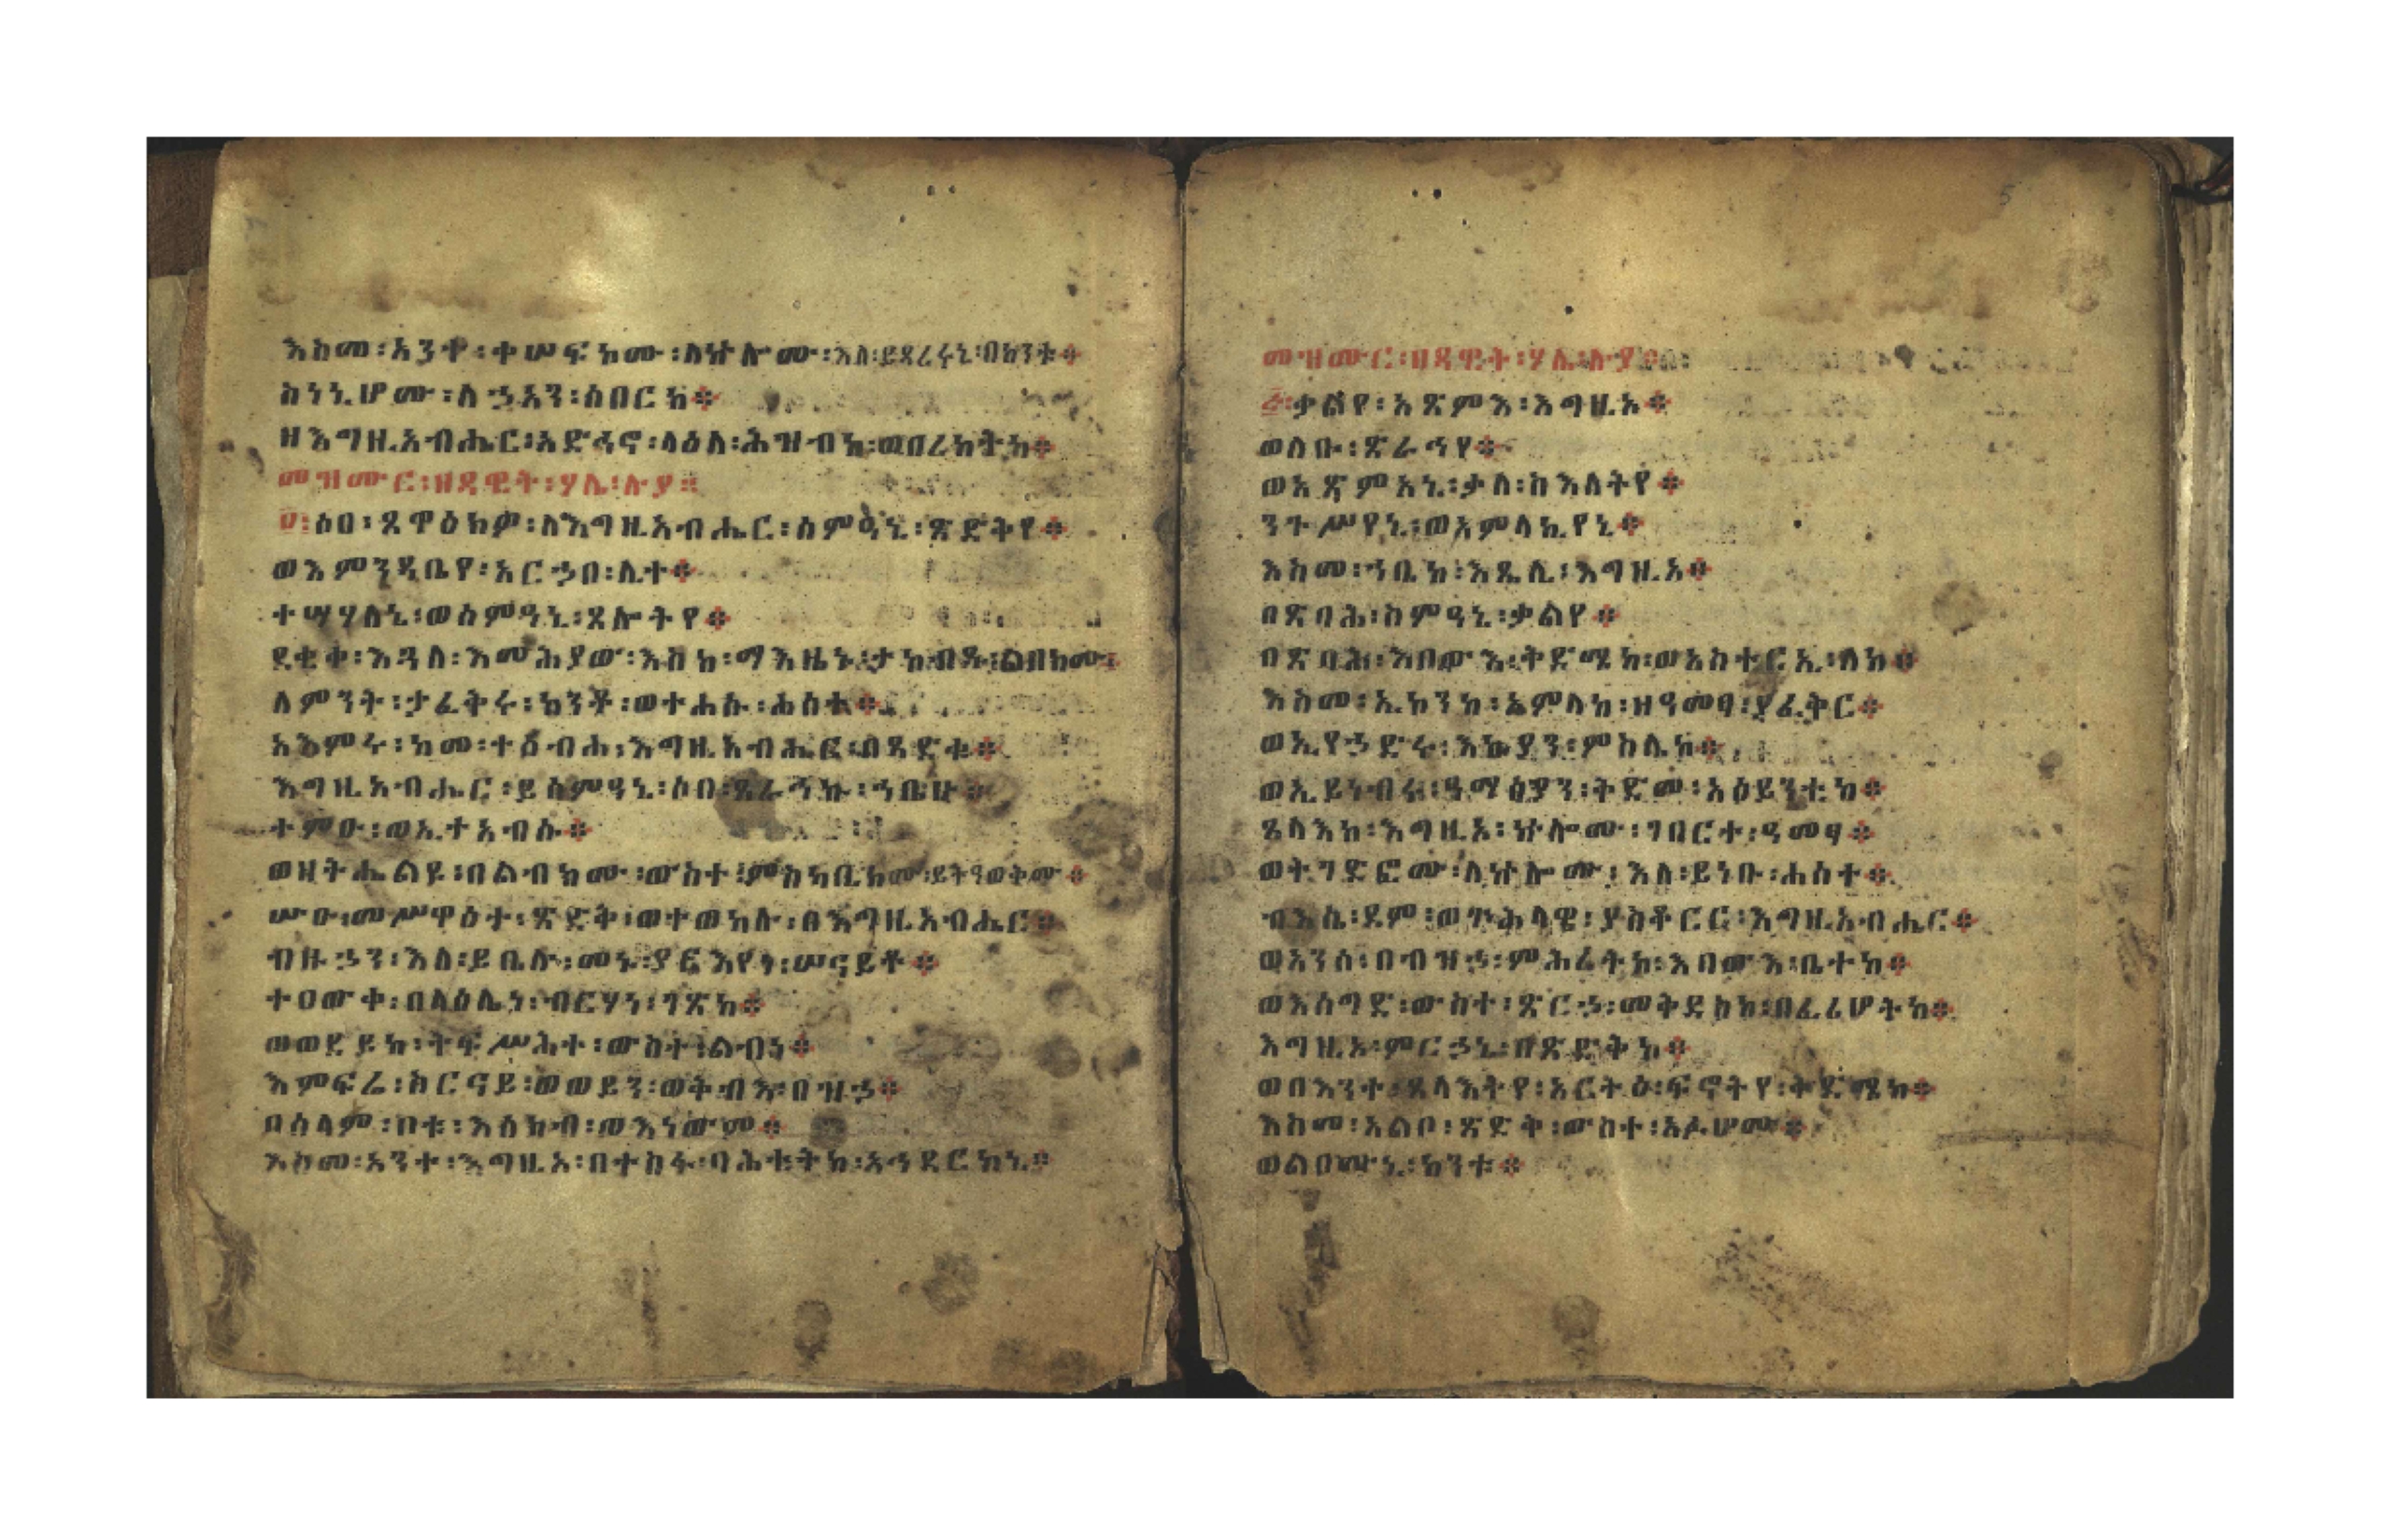 እስመ፡አንተ፡ተሠፍኮሙ፡ለኵሎሙ፡እለ፡ይጻረሩኒ፡በከንቱ።
ስነኒሆሙ፡ለኃጥአን፡ሰበርከ።
ዘእግዚአብሔር፡አድኅኖ፡ላዕለ፡ሕዝብከ፡ወበረከትከ።
መዝሙር፡ዘዳዊት፡ሃሌ፡ሉያ።
፬፡ሶበ፡ጸዋዕክዎ፡ለእግዚአብሔር፡ሰምዓኒ፡ጽድቅየ።
ወእምንዳቤየ፡አርኃበ፡ሊተ።
ተሣሃለኒ፡ወስምዓኒ፡ጸሎትየ።
ደቂቀ፡እጓለ፡እመሕያው፡እስከ፡ማእዜኑ፡ታከብዱ፡ልበክሙ፡
ለምንት፡ታፈቅሩ፡ከንቶ፡ወተሐሱ፡ሐሰተ።
አእምሩ፡ከመ፡ተዕብሐ፡እግዚአብሔር፡በጻድቁ።
እግዚአብሔር፡ይሰምዓኒ፡ሶበ፡ጸራኅኩ፡ኀቤሁ።
ተምዑ፡ወኢተአብሱ።
ወዘትሔልዩ፡በልብክሙ፡ውስተ፡ምስካቢክሙ፡ይትዓወቅሙ።
ሡዑ፡መሥዋዕተ፡ጽድቅ፡ወተወከሉ፡በእግዚአብሔር።
ብዙኃን፡እለ፡ይቤሉ፡መኑ፡ያርእየነ፡ሠናይቶ።
ተዐውቀ፡በላዕሌነ፡ብርሃነ፡ገጽከ።
ወወደይከ፡ትፍሥሕተ፡ውስተ፡ልብነ።
እምፍሬ፡ስርናይ፡ወወይን፡ወቅብእ፡በዝኃ።
በሰላም፡ቦቱ፡እሰክብ፡ወእነውም።
እስመ፡አንተ፡እግዚአ፡በተስፋ፡ባሕቲትከ፡አኅደርከኒ።
መዝሙር፡ዘዳዊት፡ሃሌ፡ሉያ።
፭፡ቃልየ፡አጽምእ፡እግዚአ።
ወለቡ፡ጽራኅየ።
ወአጽምአኒ፡ቃለ፡ስእለትየ።
ንጉሥየኒ፡ወአምላኪየኒ።
እስመ፡ኀቤከ፡እጼሊ፡እግዚአ።
በጽባሕ፡ስምዓኒ፡ቃልየ።
በጽባሕ፡እበውእ፡ቅድሜከ፡ወአስተርኢ፡ለከ።
እስመ፡ኢኮንከ፡አምላከ፡ዘዓመፃ፡ያፈቅር።
ወኢየኃድሩ፡እኩያን፡ምስሌከ።
ወኢይነብሩ፡ዓማፅያን፡ቅድመ፡አዕይንቲከ።
ጸላእከ፡እግዚአ፡ኵሎሙ፡ገበርተ፡ዓመፃ።
ወትገድፎሙ፡ለኵሎሙ፡እለ፡ይነቡ፡ሐሰተ።
ብእሴ፡ደም፡ወጕሕላዌ፡ያስቆርር፡እግዚአብሔር።
ወአንሰ፡በብዝኃ፡ምሕረትከ፡እበውእ፡ቤተከ።
ወእሰግድ፡ውስተ፡ጽርኃ፡መቅደስከ፡በፈሪሆትከ።
እግዚአ፡ምርኃኒ፡በጽድቅከ።
ወበእንተ፡ጸላእትየ፡አርትዕ፡ፍኖትየ፡ቅድሜከ።
እስመ፡አልቦ፡ጽድቅ፡ውስተ፡አፉሆሙ።
ወልቦሙኒ፡ከንቱ።